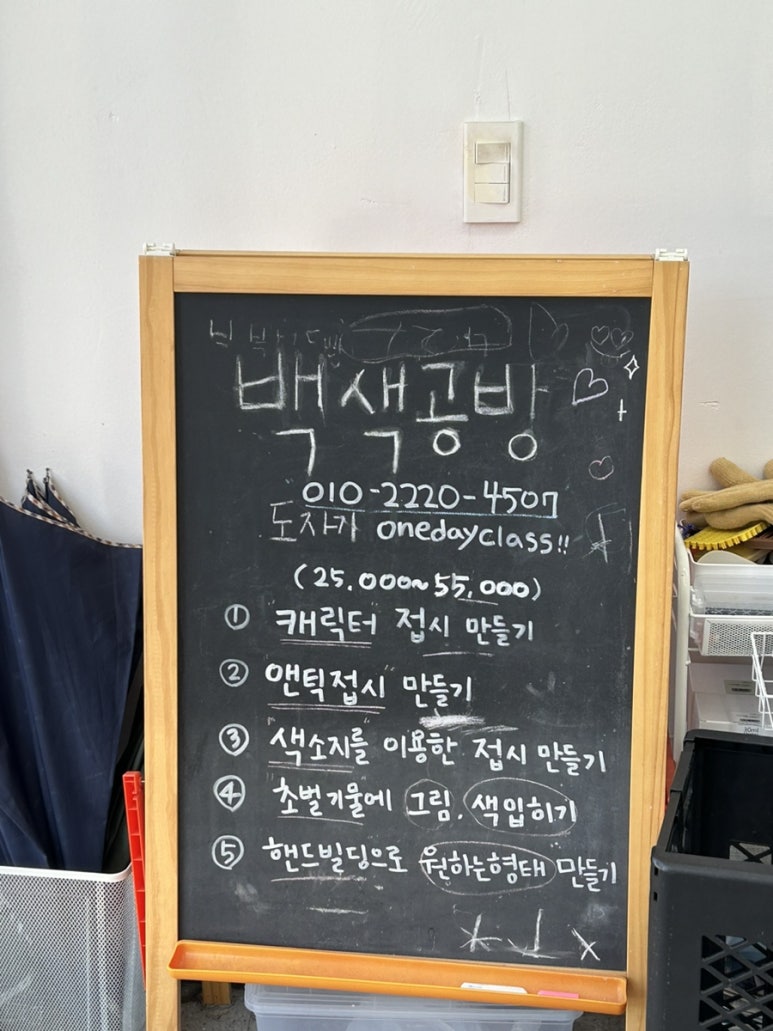 백색공방
010-2220-4507
도자기 onedayclass!!
(25.000~55,000)
① 캐릭터 접시 만들기
② 앤틱접시 만들기
③ 색소지를 이용한 접시 만들기
④ 초벌기물에 그림. 색입히기
⑤ 핸드빌딩으로 원하는형태 만들기